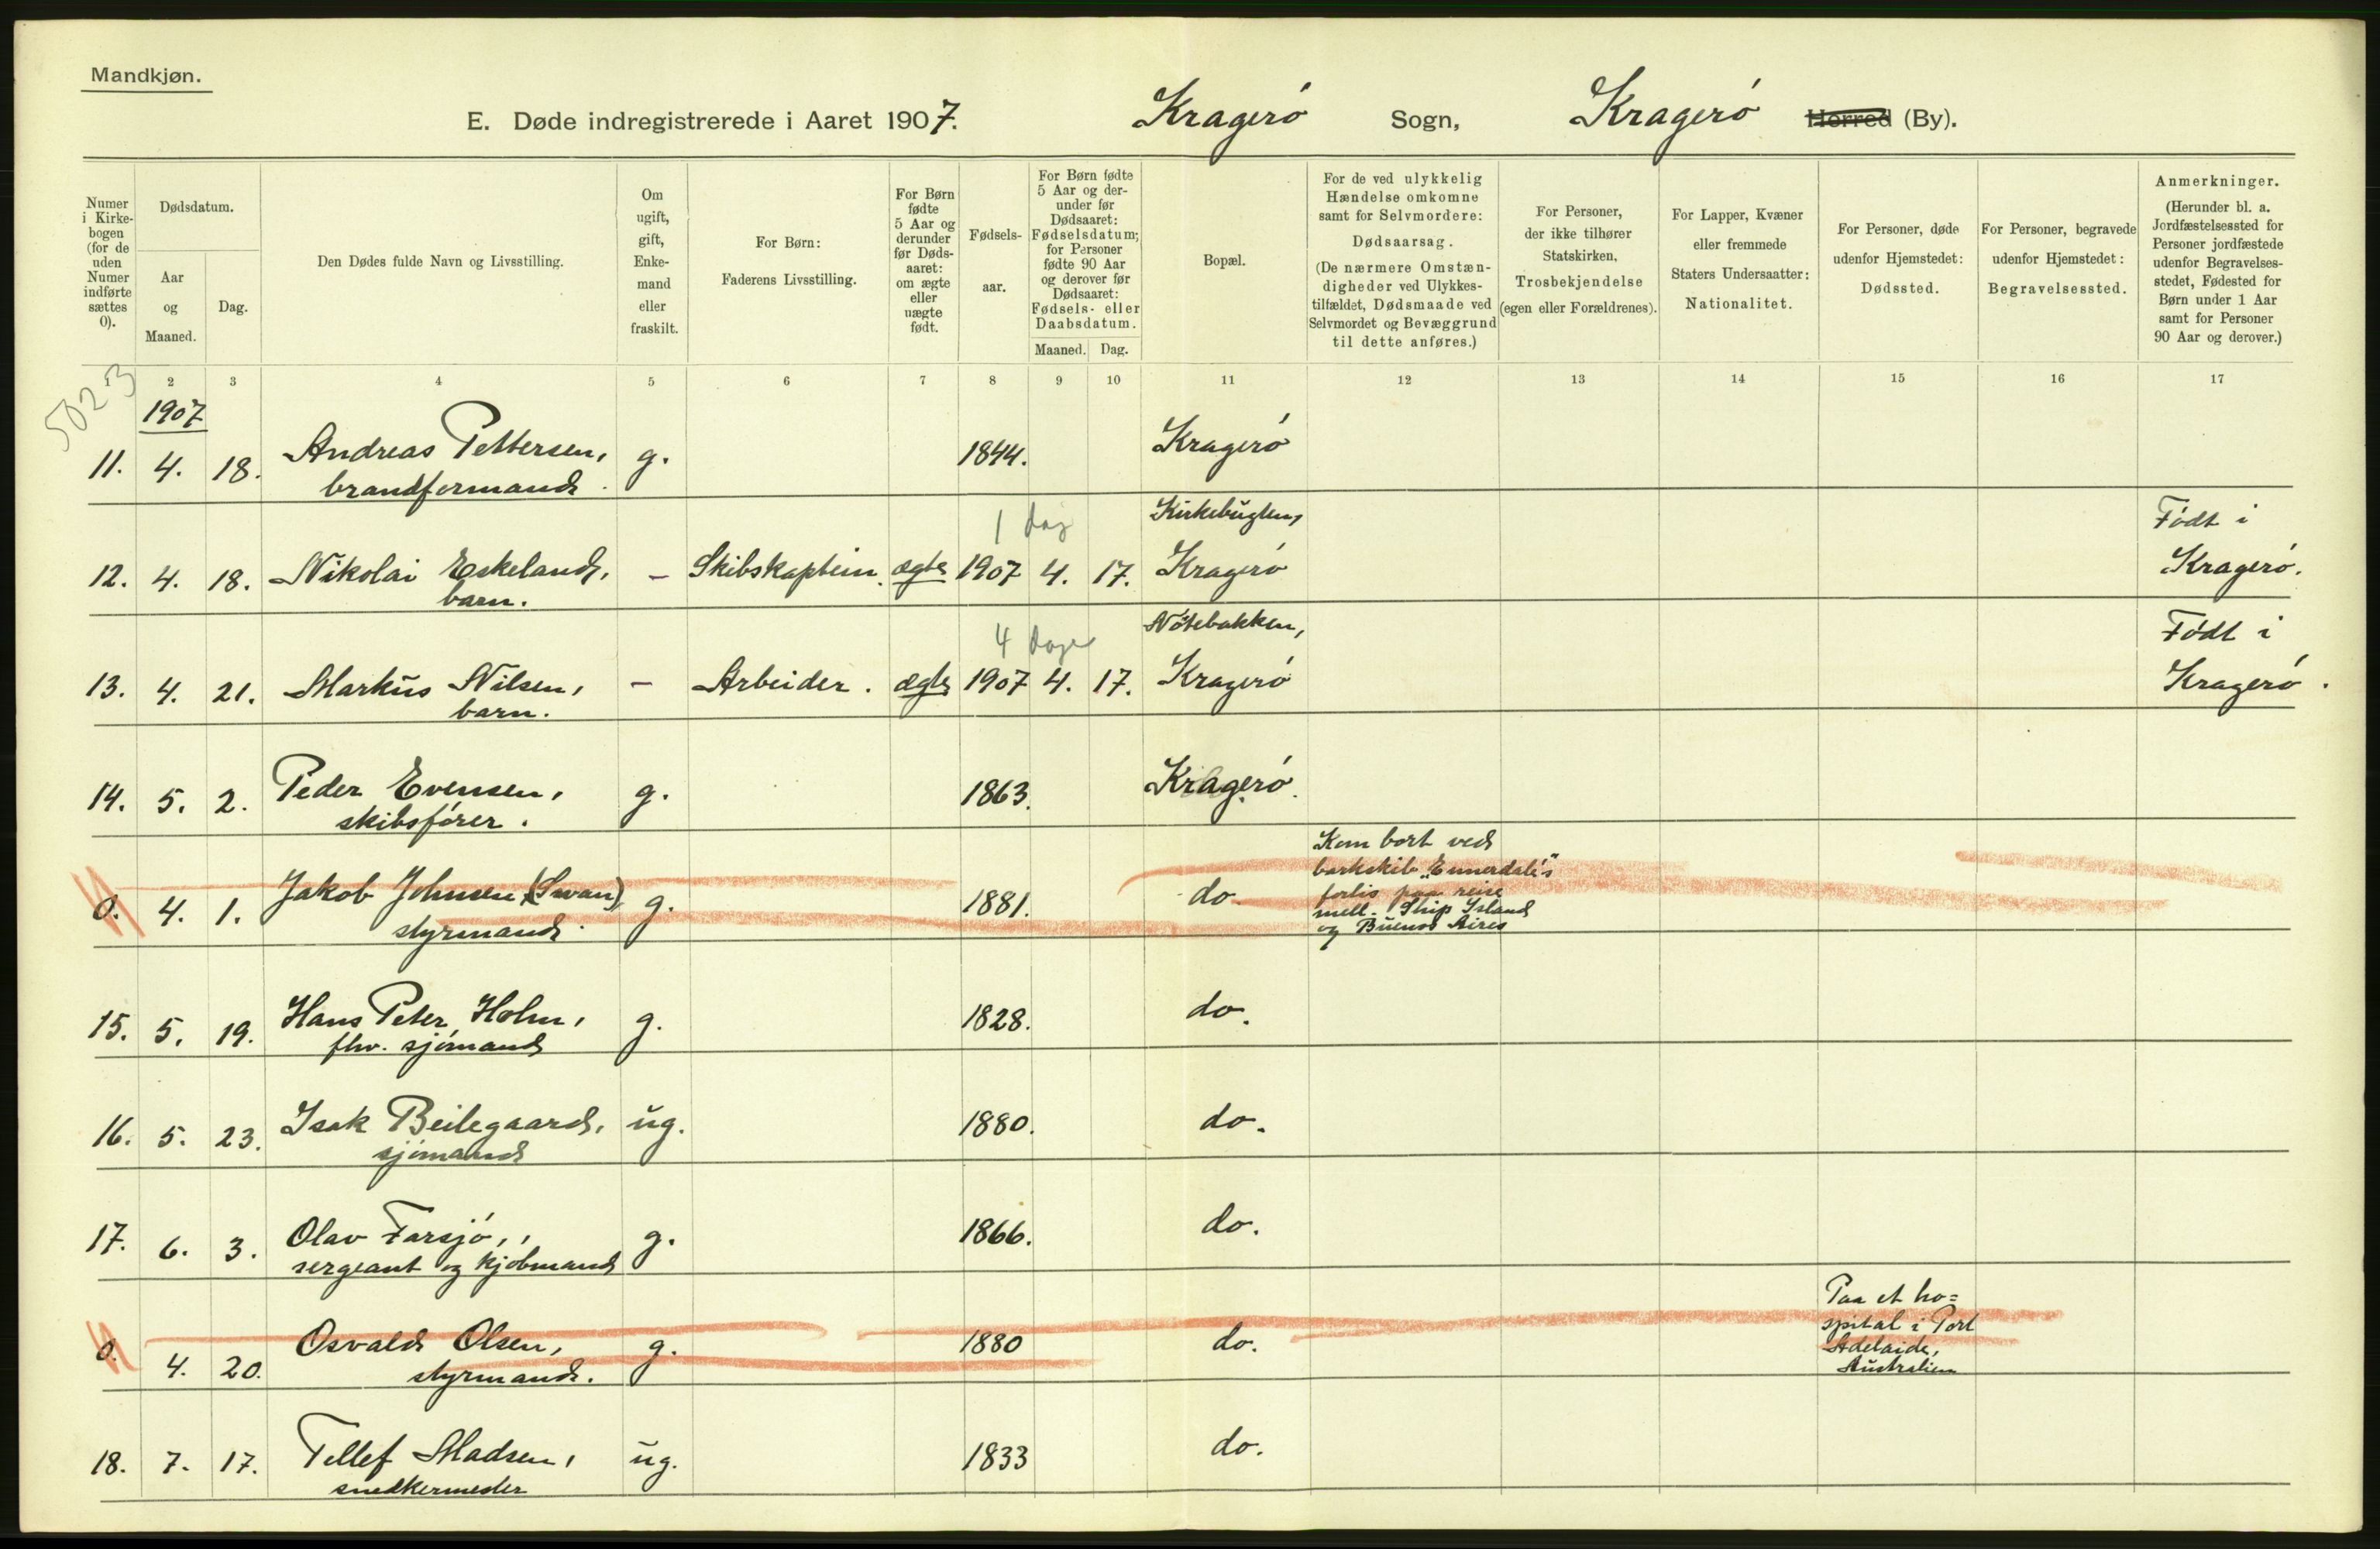 Mandkjøn.
E. Døde indregistrerede i Aaret 1907. Kragerö Sogn, Kragerö Herred (By).
Numer
i Kirke-
bogen
(for de
uden
Numer
indførte
sættes
0).
Dødsdatum.
Aar
og
Maaned.
Dag.
Den Dødes fulde Navn og Livsstilling.
Om
ugift,
gift,
Enke-
mand
eller
fraskilt.
For Børn:
Faderens Livsstilling.
For Børn
fødte
5 Aar og
derunder
før Døds-
aaret:
om ægte
eller
uægte
født.
Fødsels-
aar.
For Børn fødte
5 Aar og der-
under før
Dødsaaret:
Fødselsdatum;
for Personer
fødte 90 Aar
og derover før
Dødsaaret:
Fødsels- eller
Daabsdatum.
Maaned. Dag.
Bopæl.
For de ved ulykkelig
Hændelse omkomne
samt for Selvmordere:
Dødsaarsag.
(De nærmere Omstæn-
digheder ved Ulykkes-
tilfældet, Dødsmaade ved
Selvmordet og Bevæggrund
til dette anføres.)
For Personer,
der ikke tilhører
Statskirken,
Trosbekjendelse
(egen eller Forældrenes).
For Lapper, Kvæner
eller fremmede
Staters Undersaatter:
Nationalitet.
For Personer, døde
udenfor Hjemstedet:
Dødssted.
For Personer, begravede
udenfor Hjemstedet:
Begravelsessted.
Anmerkninger.
(Herunder bl. a.
Jordfæstelsessted for
Personer jordfæstede
udenfor Begravelses-
stedet, Fødested for
Børn under 1 Aar
samt for Personer
90 Aar og derover.)
1 2 3 4 5 6 7 8 9 10 11 12 13 14 15 16 17
5023
1907
11. 4. 18. Andreas Pettersen, g. 1844. Kragerö
brandformand.
1 dag Kirkebugten, Födt i
12. 4. 18. Nikolai Eskeland, - Skibskaptein. ægte 1907 4. 17. Kragerö Kragerö.
barn.
4 dage Nötebakken, Födt i
13. 4. 21. Markus Nilsen, - Arbeider. ægte 1907 4. 17. Kragerö Kragerö.
barn.
14. 5. 2. Peder Evensen, g. 1863. Kragerö.
skibsförer.
0. 4. 1. Jakob Johnsen (Swan) g. 1881. do.
styrmand.
Kom bort ved
barkskib "Ennerdale's"
forlis paa reise
mell. Ship Island
og Buenos Aires
15. 5. 19. Hans Peter Holm, g. 1828. do.
fhv. sjömand
16. 5. 23. Isak Beilegaard, ug. 1880. do.
sjömand
17. 6. 3. Olav Farsjö, g. 1866. do.
sergeant og kjöbmand
0. 4. 20. Osvald Olsen, g. 1880 do.
styrmand.
Paa et ho=
spital i Port
Adelaide,
Australien
18. 7. 17. Tellef Madsen, ug. 1833 do.
snedkermester